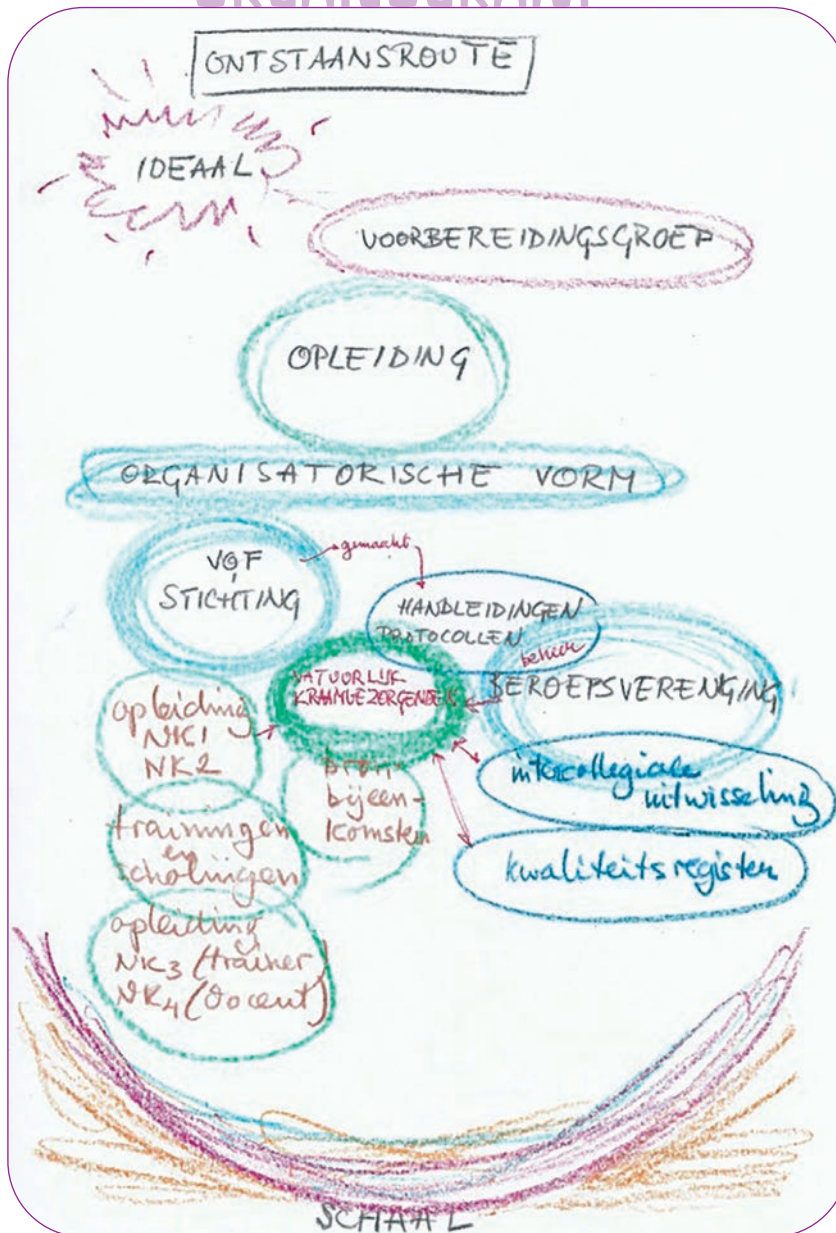 ONTSTAANSROUTE
IDEAAL
VOORBEREIDINGSGROEP
OPLEIDING
ORGANISATORISCHE VORM
VOF
STICHTING
gemaakt
HANDLEIDINGEN
PROTOCOLLEN
beheer
BEROEPSVERENIGING
NATUURLIJK
opleiding
NK1
NK2
bijeen-
komsten
intercollegiale
uitwisseling
trainingen
en
scholingen
kwaliteitsregister
opleiding
NK3 (trainer)
NK4 (Docent)
SCHAAL